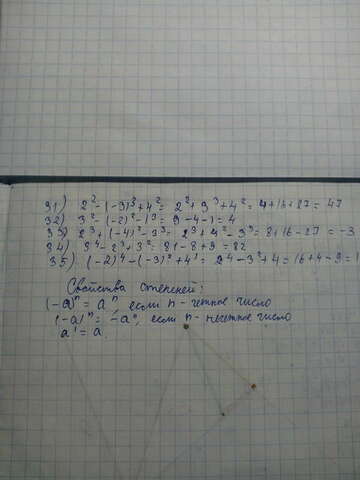 31) 2² - (-3)³ + 4² = 2² + 3³ + 4² = 4 + 16 + 27 = 47
32) 3² - (-2)² - 1³ = 9 - 4 - 1 = 4
33) 2³ + (-4)² - 3³ = 2³ + 4² - 3³ = 8 + 16 - 27 = -3
34) 3⁴ - 2³ + 3² = 81 - 8 + 9 = 82
35) (-2)⁴ - (-3)² + 4¹ = 2⁴ - 3² + 4 = 16 + 4 - 9 = 1
Свойства степеней:
(-a)ⁿ = aⁿ, если n - четное число
(-a)ⁿ = -aⁿ, если n - нечетное число
a¹ = a